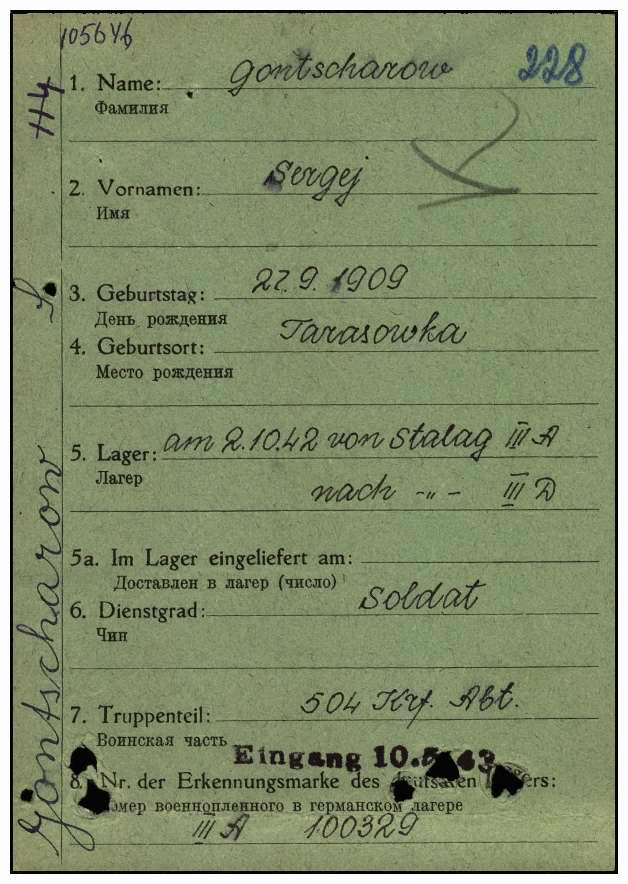 105646
228
114
1. Name: Gontscharow
Фамилия
2. Vornamen: Sergej
Имя
3. Geburtstag: 27.9.1909
День рождения
4. Geburtsort: Tarasowka
Место рождения
5. Lager: am 2.10.42 von Stalag III A
Лагер
nach -„- III D
5a. Im Lager eingeliefert am:
Доставлен в лагер (число)
6. Dienstgrad: Soldat
Чин
7. Truppenteil: 504 Krf. Abt.
Воинская часть
Eingang 10. 43
8. Nr. der Erkennungsmarke des
военнопленного в германском лагере
III A 100329
Gontscharow S.